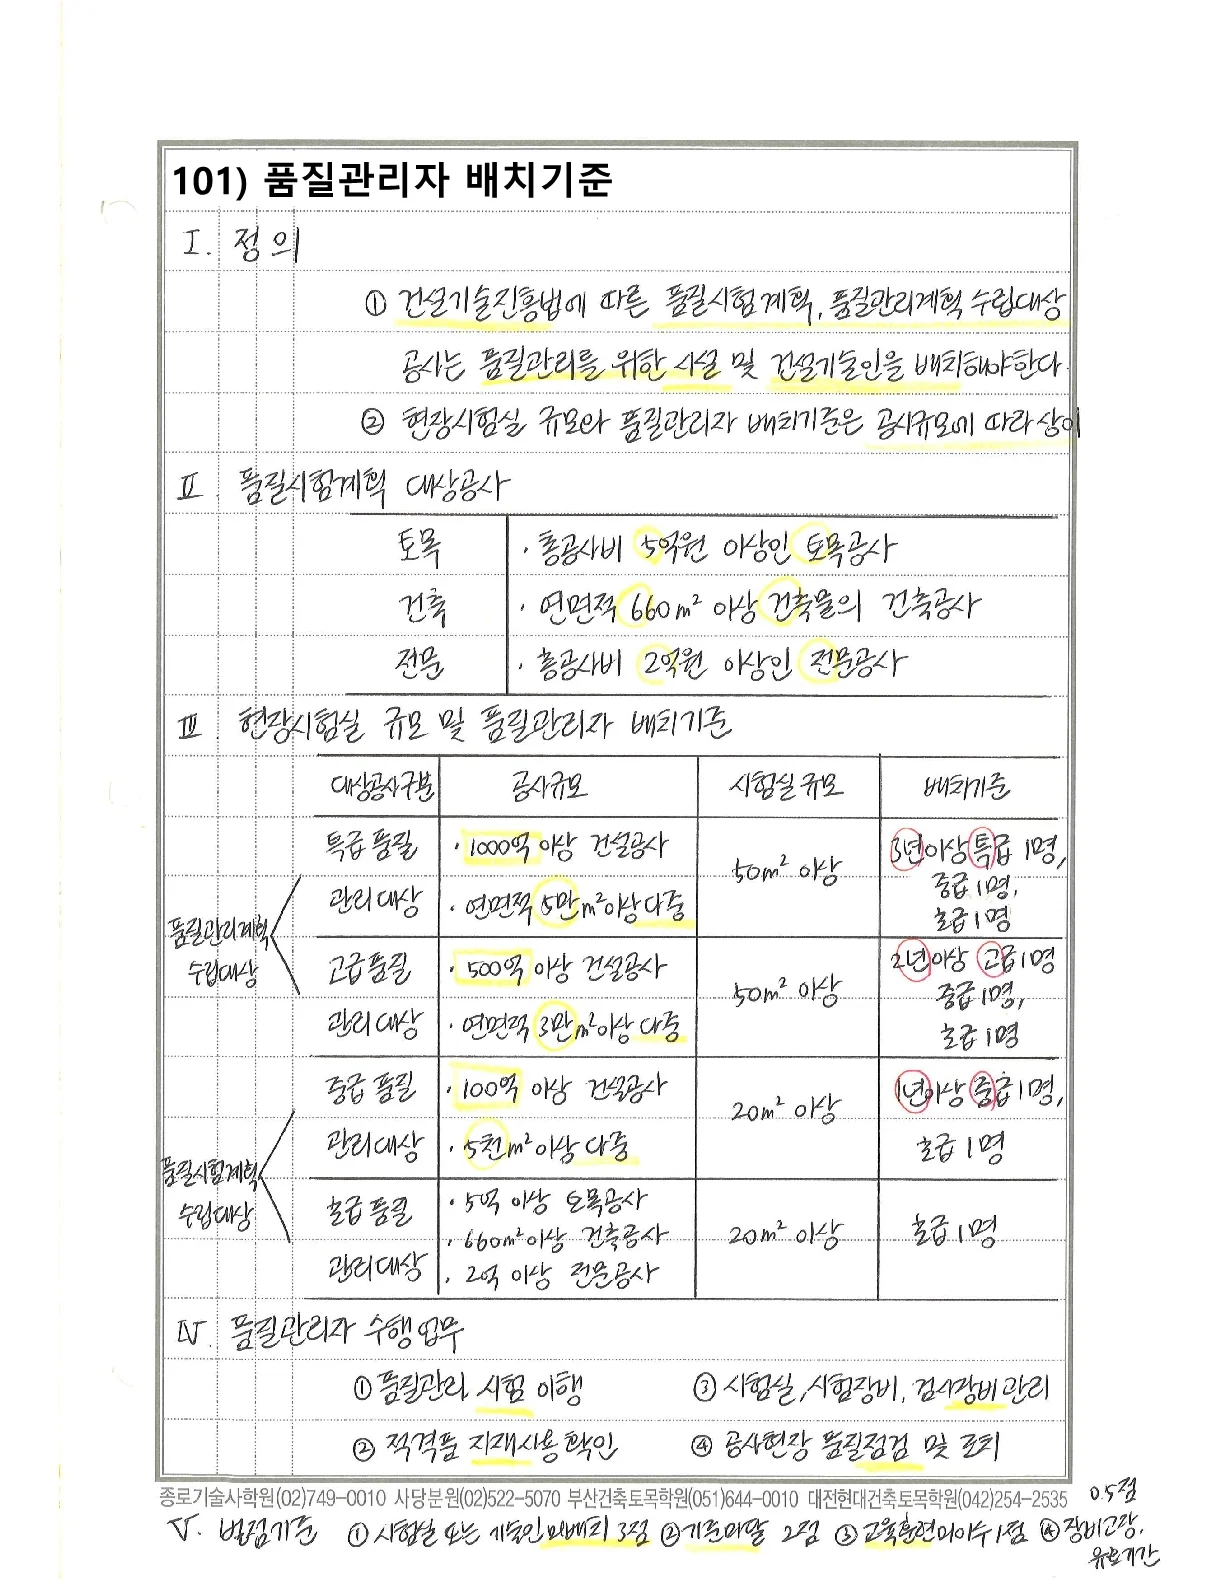 101) 품질관리자 배치기준
I. 정의
① 건설기술진흥법에 따른 품질시험계획, 품질관리계획 수립대상
공사는 품질관리를 위한 시설 및 건설기술인을 배치해야한다.
② 현장시험실 규모와 품질관리자 배치기준은 공사규모에 따라 상이
II. 품질시험계획 대상공사
토목 · 총공사비 5억원 이상인 토목공사
건축 · 연면적 660m² 이상 건축물의 건축공사
전문 · 총공사비 2억원 이상인 전문공사
III. 현장시험실 규모 및 품질관리자 배치기준
대상공사구분 공사규모 시험실 규모 배치기준
품질관리계획
수립대상
특급 품질
관리대상
· 1000억 이상 건설공사
· 연면적 5만m²이상 다중
50m² 이상
3년이상 특급 1명,
중급 1명,
초급 1명
고급 품질
관리대상
· 500억 이상 건설공사
· 연면적 3만m²이상 다중
50m² 이상
2년이상 고급 1명
중급 1명,
초급 1명
품질시험계획
수립대상
중급 품질
관리대상
· 100억 이상 건설공사
· 5천m²이상 다중
20m² 이상
1년이상 중급 1명,
초급 1명
초급 품질
관리대상
· 5억 이상 토목공사
· 660m²이상 건축공사
· 2억 이상 전문공사
20m² 이상
초급 1명
IV. 품질관리자 수행업무
① 품질관리 시험 이행 ③ 시험실, 시험장비, 검사장비 관리
② 적격품 자재사용 확인 ④ 공사현장 품질점검 및 조치
종로기술사학원(02)749-0010 사당분원(02)522-5070 부산건축토목학원(051)644-0010 대전현대건축토목학원(042)254-2535
0.5점
V. 벌점기준 ① 시험실 또는 기술인 미배치 3점 ② 기준미달 2점 ③ 교육훈련미이수 1점 ④ 장비고장,
유효기간